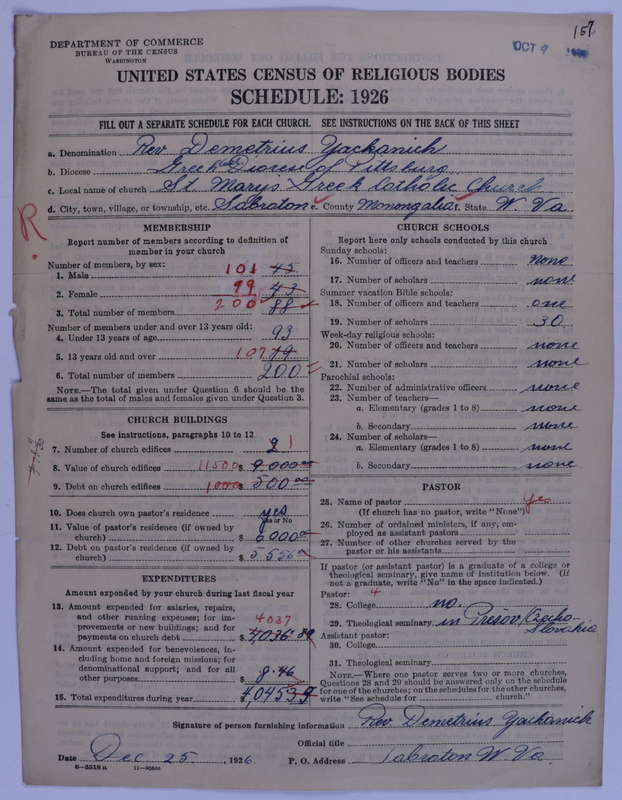 157
OCT 9
DEPARTMENT OF COMMERCE
BUREAU OF THE CENSUS
WASHINGTON
UNITED STATES CENSUS OF RELIGIOUS BODIES
SCHEDULE: 1926
FILL OUT A SEPARATE SCHEDULE FOR EACH CHURCH. SEE INSTRUCTIONS ON THE BACK OF THIS SHEET
a. Denomination Rev Demetrius Yackanich
b. Diocese Greek Diocese of Pittsburg
c. Local name of church St Marys Greek Catholic Church
d. City, town, village, or township, etc. Sabraton e. County Monongalia f. State W. Va
R.
MEMBERSHIP
Report number of members according to definition of
member in your church
Number of members, by sex:
1. Male 101 45
2. Female 99 43
3. Total number of members 200 88
Number of members under and over 13 years old:
4. Under 13 years of age 93
5. 13 years old and over 107
6. Total number of members 200
NOTE.—The total given under Question 6 should be the
same as the total of males and females given under Question 3.
CHURCH BUILDINGS
See instructions, paragraphs 10 to 12
7. Number of church edifices 2 1
8. Value of church edifices 11500 $ 9.000 00
9. Debt on church edifices 1000 $ 500 00
10. Does church own pastor's residence yes
Yes or No
11. Value of pastor's residence (if owned by
church) $ 6000 00
12. Debt on pastor's residence (if owned by
church) $ 5556
EXPENDITURES
Amount expended by your church during last fiscal year
13. Amount expended for salaries, repairs,
and other running expenses; for im-
provements or new buildings; and for
payments on church debt 4037 $ 4036.89
14. Amount expended for benevolences, in-
cluding home and foreign missions; for
denominational support; and for all
other purposes $ 8.46
15. Total expenditures during year $ 4,045
CHURCH SCHOOLS
Report here only schools conducted by this church
Sunday schools:
16. Number of officers and teachers none
17. Number of scholars none
Summer vacation Bible schools:
18. Number of officers and teachers one
19. Number of scholars 30
Week-day religious schools:
20. Number of officers and teachers none
21. Number of scholars none
Parochial schools:
22. Number of administrative officers none
23. Number of teachers—
a. Elementary (grades 1 to 8) none
b. Secondary none
24. Number of scholars—
a. Elementary (grades 1 to 8) none
b. Secondary none
PASTOR
25. Name of pastor yes
(If church has no pastor, write "None")
26. Number of ordained ministers, if any, em-
ployed as assistant pastors
27. Number of other churches served by the
pastor or his assistants
If pastor (or assistant pastor) is a graduate of a college or
theological seminary, give name of institution below. (If
not a graduate, write "No" in the space indicated.)
Pastor: 4
28. College no.
29. Theological seminary in Presov Czecho-
Slovakia
Assistant pastor:
30. College
31. Theological seminary
NOTE.—Where one pastor serves two or more churches,
Questions 28 and 29 should be answered only on the schedule
for one of the churches; on the schedules for the other churches,
write "See schedule for church."
Signature of person furnishing information Rev. Demetrius Yackanich
Official title
Date Dec 25, 1926 P. O. Address Sabraton W. Va
8—5518a 11—9034a